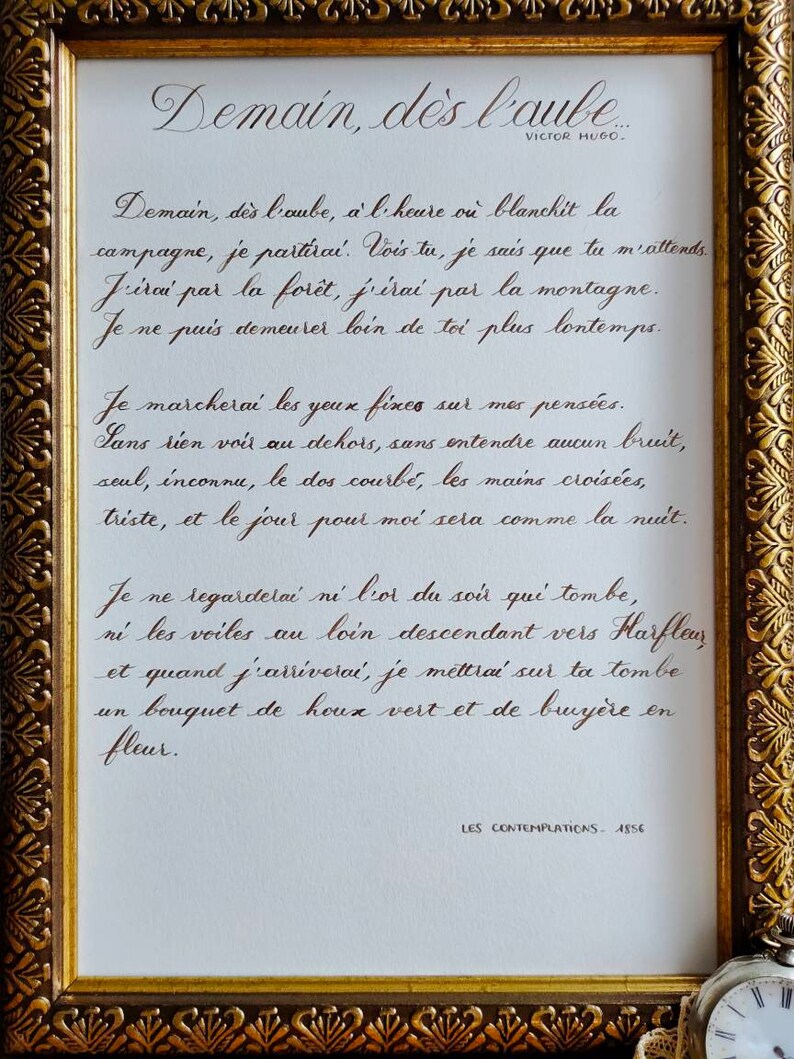 Demain, dès l'aube...
VICTOR HUGO-
Demain, dès l'aube, à l'heure où blanchit la
campagne, je partirai. Vois-tu, je sais que tu m'attends.
J'irai par la forêt, j'irai par la montagne.
Je ne puis demeurer loin de toi plus lontemps.
Je marcherai les yeux fixes sur mes pensées.
Sans rien voir au dehors, sans entendre aucun bruit,
seul, inconnu, le dos courbé, les mains croisées,
triste, et le jour pour moi sera comme la nuit.
Je ne regarderai ni l'or du soir qui tombe,
ni les voiles au loin descendant vers Harfleur,
et quand j'arriverai, je mettrai sur ta tombe
un bouquet de houx vert et de bruyère en
fleur.
LES CONTEMPLATIONS- 1856